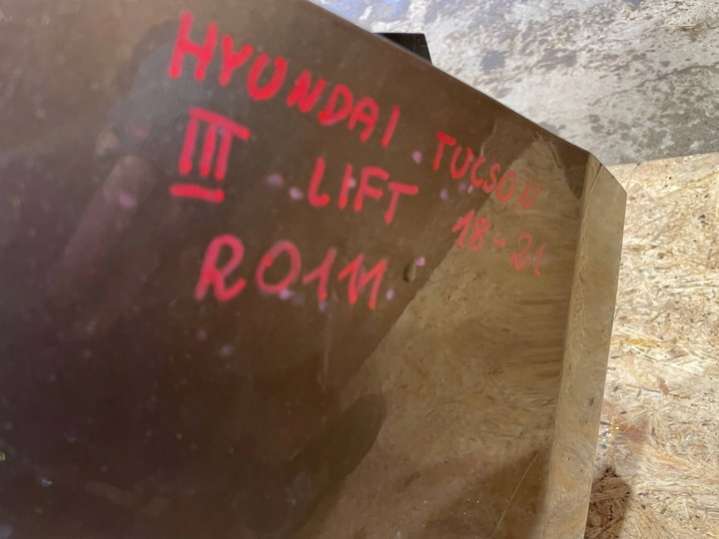 HYUNDAI TUCSON
III LIFT 18-21
R0111